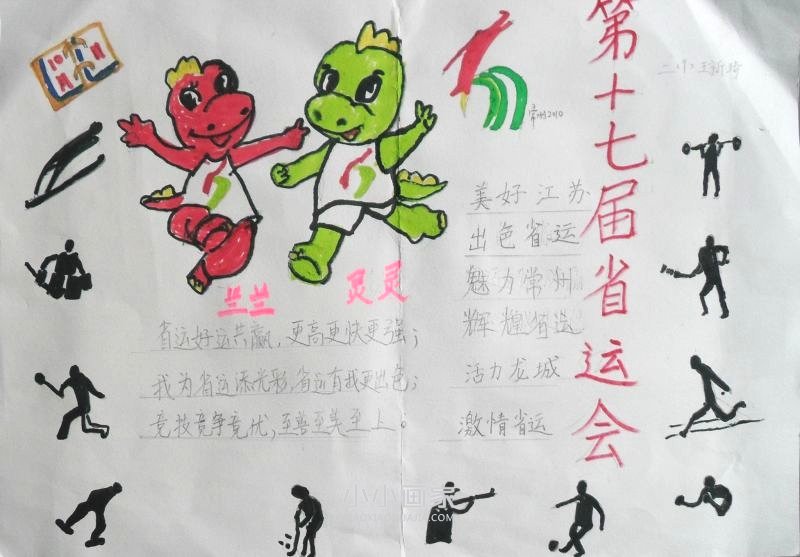 第十七届省运会
二(1) 王新琦
10月
常州2010
兰兰
灵灵
美好江苏
出色省运
魅力常州
辉煌省运
活力龙城
激情省运
省运好运共赢,更高更快更强;
我为省运添光彩,省运有我更出色;
竞技竞争竞优,至善至美至上。
小小画家